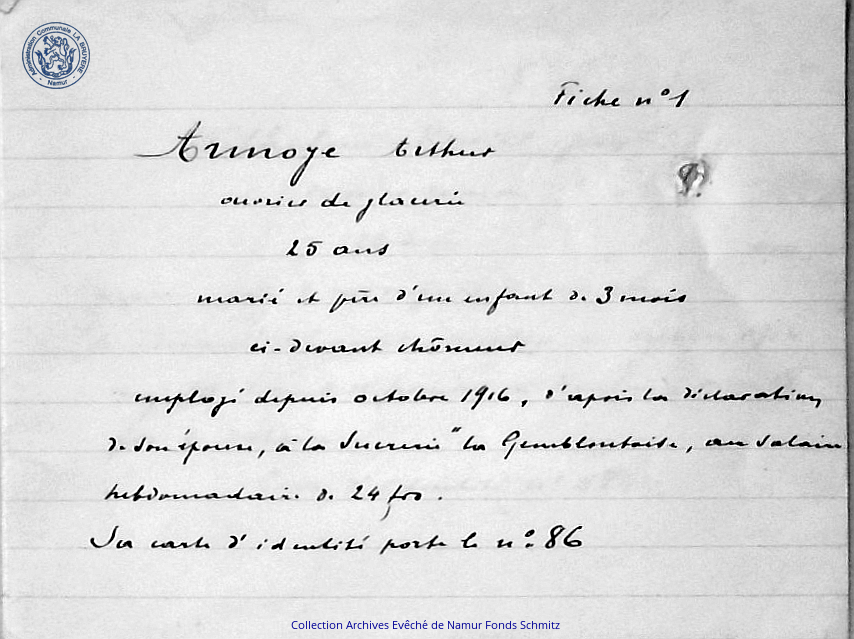 Administration Communale LA BRUYERE - Namur -
Fiche n° 1
Annoye Arthur
ouvrier de glacerie
25 ans
marié et père d'un enfant de 3 mois
ci-devant chômeur
employé depuis octobre 1916, d'après la déclaration
de son épouse, à la Sucrerie "la Gembloutoise, au salaire
hebdomadaire de 24 frs.
Sa carte d'identité porte le n° 86
Collection Archives Evêché de Namur Fonds Schmitz